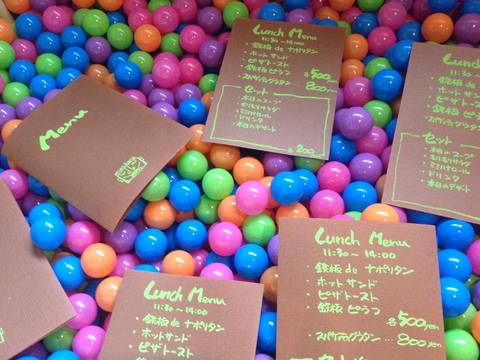 Menu
Lunch Menu
11:30～14:00
・鉄板 de ナポリタン
・ホットサンド
・ピザトースト
・鉄板ピラフ
各500yen
・スパゲティグラタン… 800yen
セット
・本日のスープ
・ドリンク
・本日のデザート
Lunch Menu
セット
・本日のスープ
・ドリンク
・本日のデザート
Lunch Menu
11:30～14:00
・鉄板 de ナポリタン
・ホットサンド
・ピザトースト
Lunch Menu
11:30～14:00
・鉄板 de ナポリタン
・ホットサンド
・ピザトースト
・鉄板ピラフ
各500yen
・スパゲティグラタン… 800yen